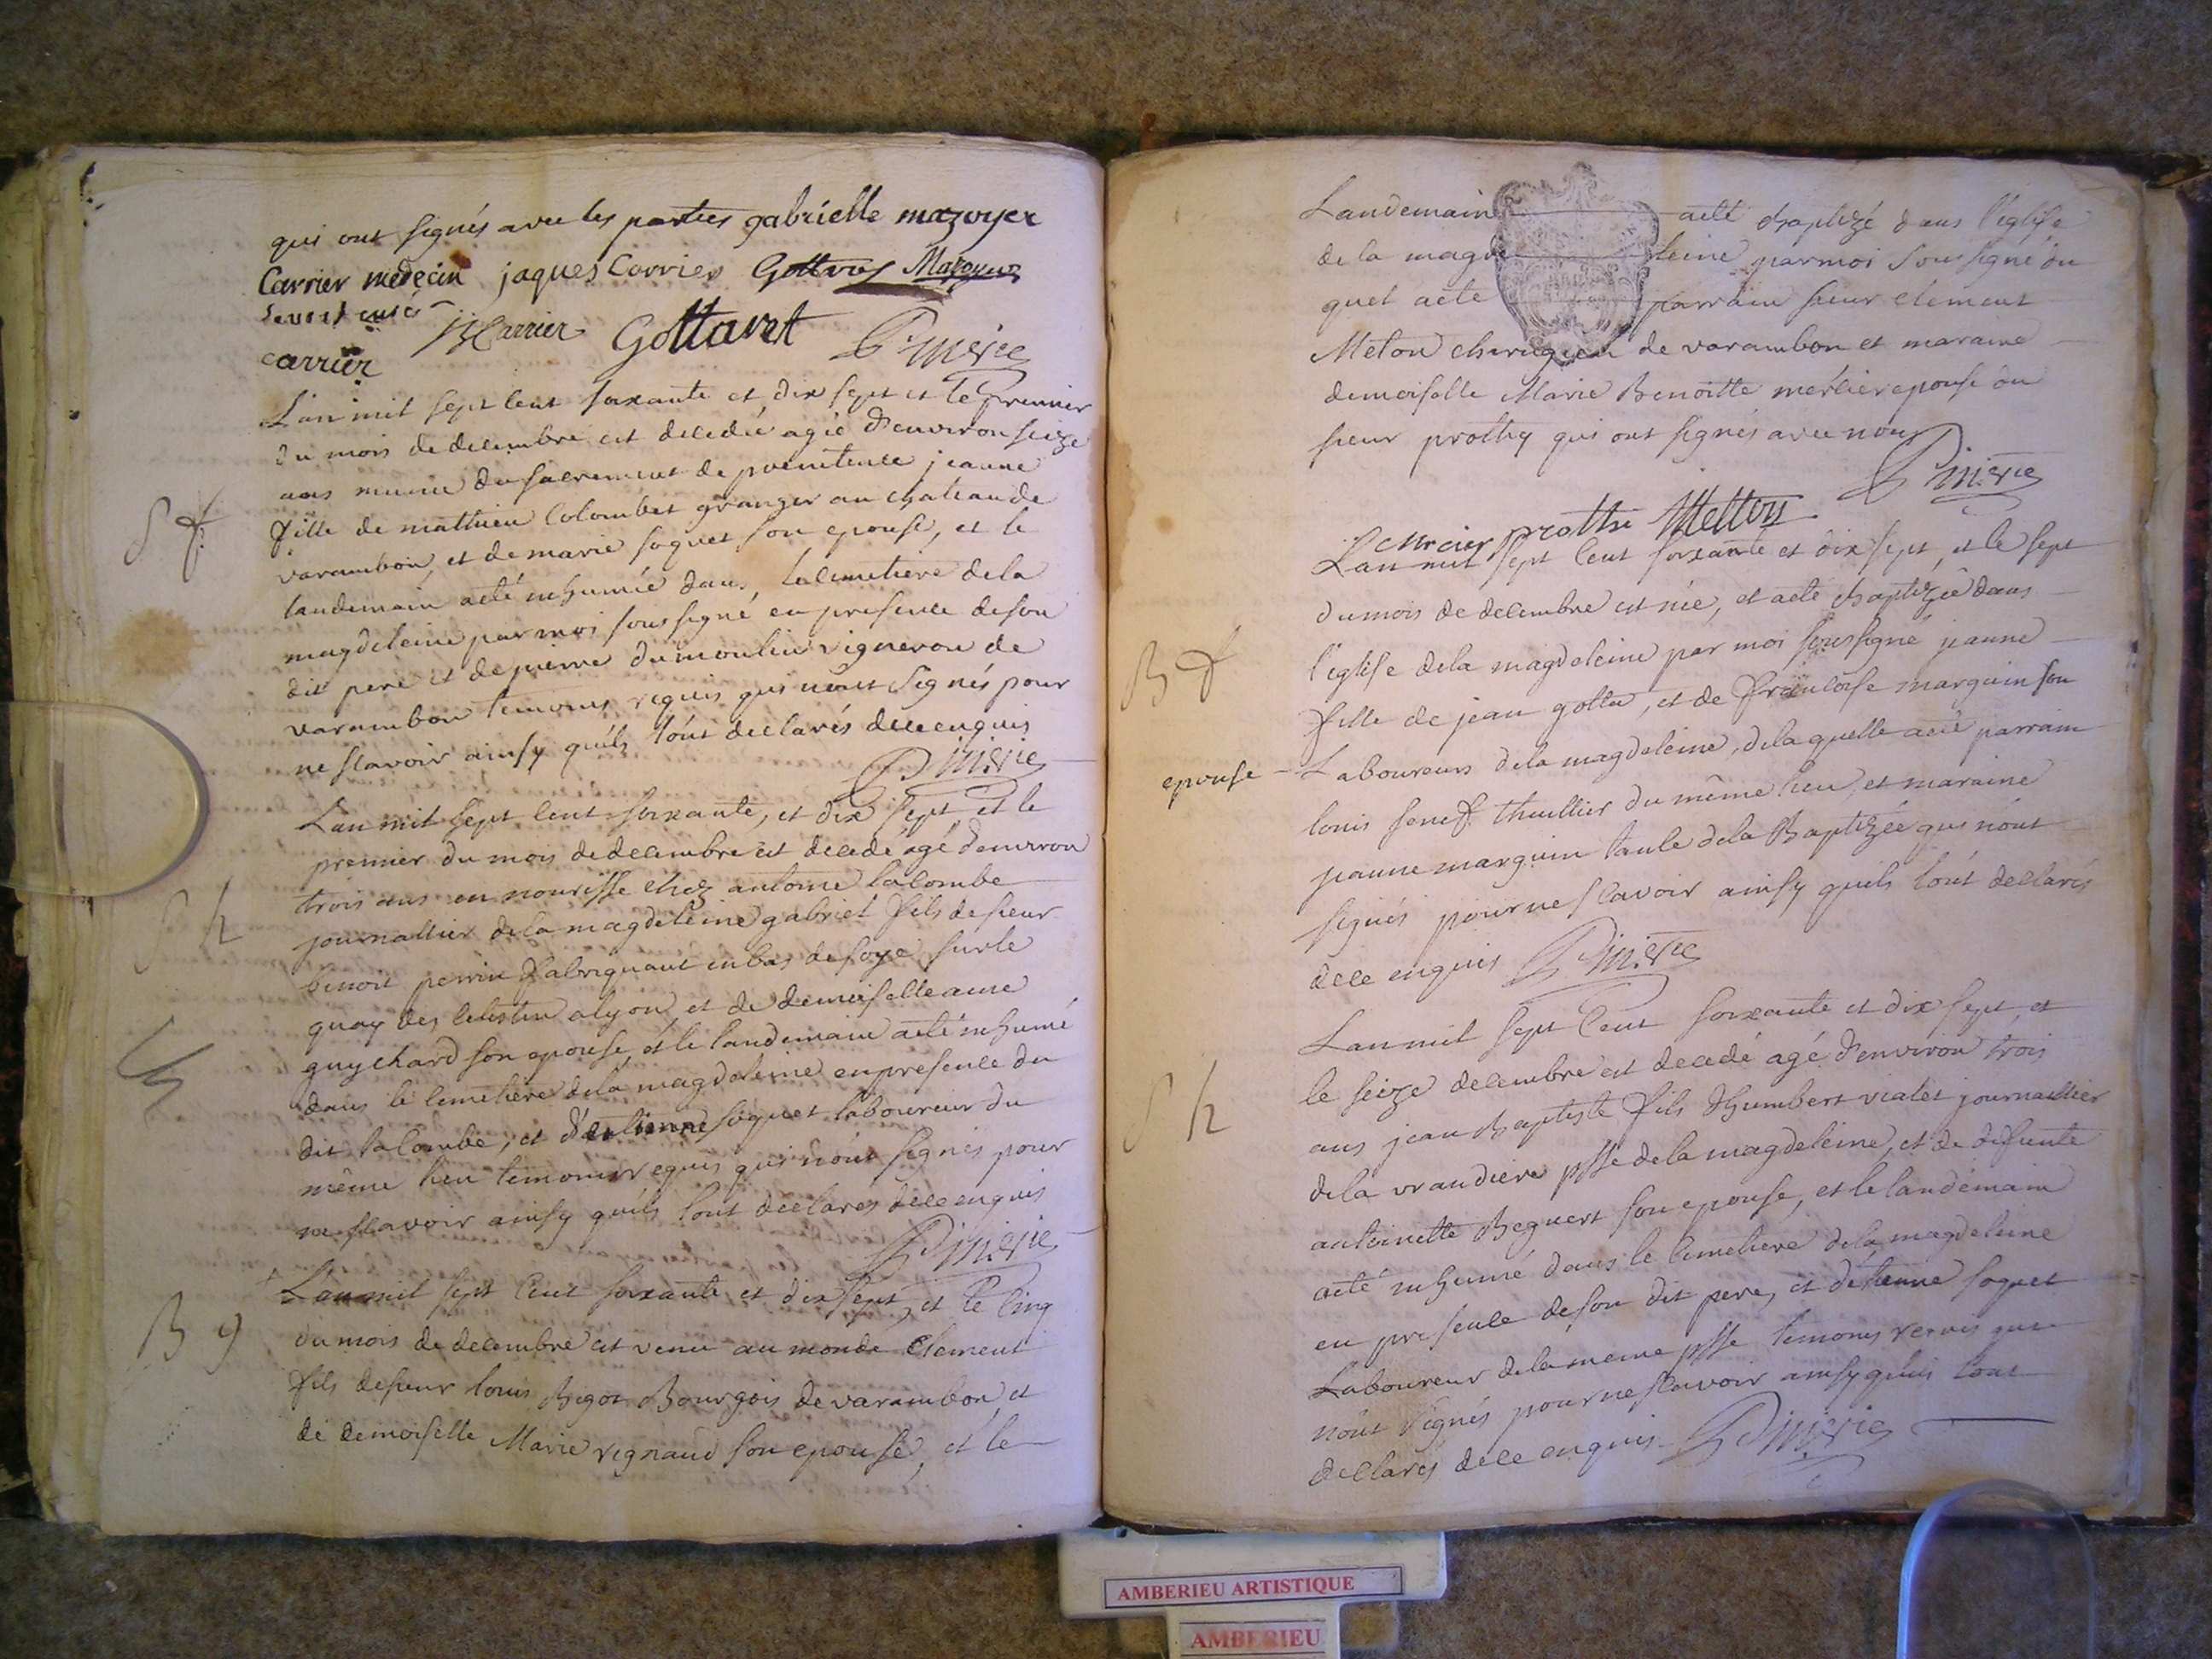 qui ont signés avec les parties gabrielle mazoyer
Carrier medecin jaques Carrier Mazoyer
carrier JB Carrier Gottaret
L'an mil sept cent soixante et dix sept et le premier
du mois de decembre est decedée agée d'environ seize
ans munie du sacrement de poenitence jeanne
S f
fille de mathieu Colombet granger au chateau de
varambon, et de marie soquet son epouse, et le
landemain aété inhumée dans le cimetiere dela
magdeleine par moi soussigné en presence deson
dit pere et de pierre dumoulin vigneron de
varambon temoins requis qui n'ont signés pour
ne scavoir ainsy quils l'ont declarés dece enquis
L'an mil sept cent soixante, et dix sept, et le
premier du mois de decembre est decedé agé denviron
trois ans en nourisse chez antoine lacombe
S h
journallier dela magdeleine gabriel fils de sieur
benoit perrin fabriquant en bas de soye sur le
quay des celestin alyon, et de demoiselle anne
guychard son epouse, et le landemain aété inhumé
dans le cimetiere dela magdeleine en presence du
dit lacombe, et d'estienne soquet laboureur du
même lieu temoins requis qui n'ont signés pour
ne scavoir ainsy quils l'ont declarés dece enquis
L'an mil sept cent soixante et dix sept, et le cinq
B g
du mois de decembre est venu au monde Clement
fils de sieur louis Bigot Bourgois de varambon, et
de demoiselle Marie vignaud son epouse, et le
Landemain aété Baptizé dans l'église
de la magdeleine par moi soussigné du
quel aété parrain sieur clement
Meton chirugien de varambon et maraine
demoiselle Marie Benoitte merlier epouse du
sieur prothy qui ont signés avec nous
prothe Metton
L'an mil sept cent soixante et dix sept, et le sept
du mois de decembre est née, et aété Baptizée dans
B f
l'eglise dela magdeleine par moi soussigné jeanne
fille de jean gottu, et de francoise marguin son
epouse - Laboureurs dela magdeleine, dela quelle aété parrain
louis thuillier du même lieu, et maraine
jeanne marguin tante dela Baptizée qui n'ont
signés pour ne scavoir ainsy quils l'ont declarés
dece enquis
L'an mil sept cent soixante et dix sept, et
le seize decembre est decedé agé d'environ trois
S h
ans jean Baptiste fils d'humbert vialet journallier
dela vrandiere psse dela magdeleine, et de defunte
antoinette Beguert son epouse, et le landemain
aété inhumé dans le cimetiere dela magdeleine
en presence deson dit pere, et d'etienne soquet
Laboureur dela meme psse temoins requis qui
n'ont signés pour ne scavoir ainsy quils l'ont
declarés dece enquis
AMBERIEU ARTISTIQUE
AMBERIEU